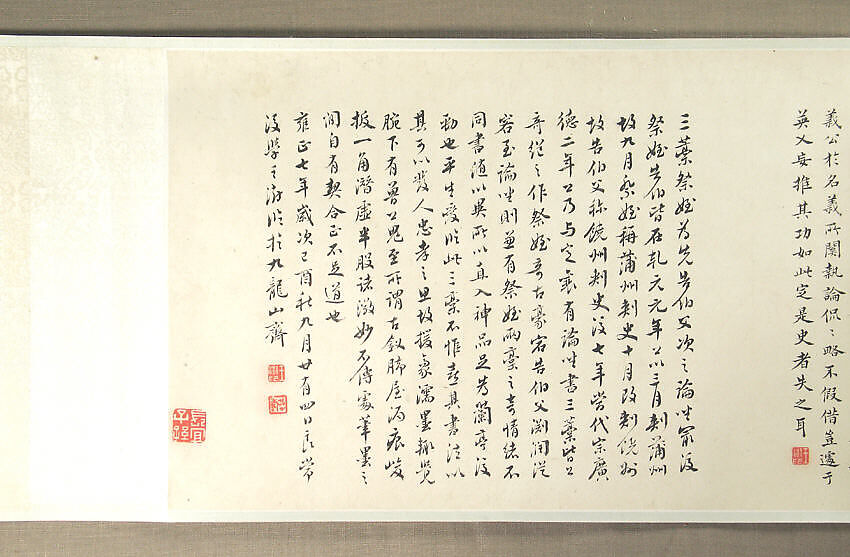 義公於名義所關執論侃〻略不假借豈遽于
英乂妄推其功如此定是史者失之耳
三藁祭姪為先告伯父次之論坐最後
祭姪告伯皆在乾元元年公以三月刺蒲州
故九月祭姪稱蒲州刺史十月改刺饒州
故告伯父称饒州刺史後七年當代宗廣
德二年公乃与定襄有論坐書三藁皆公
奇絕之作祭姪奇古豪宕告伯父淵潤從
容至論坐則兼有祭姪兩藁之奇情緒不
同書隨以異所以直入神品足為蘭亭後
勁也平生愛臨此三藁不惟喜其書法以
其可以發人忠孝之思故援豪濡墨輒覺
腕下有魯公鬼至所謂古釵腳屋漏痕
披一角潛虛半股諸微妙不傳處筆墨之
間自有契合正不足道也
雍正七年歲次己酉秋九月廿有四日良常
後學王澍臨於九龍山齋